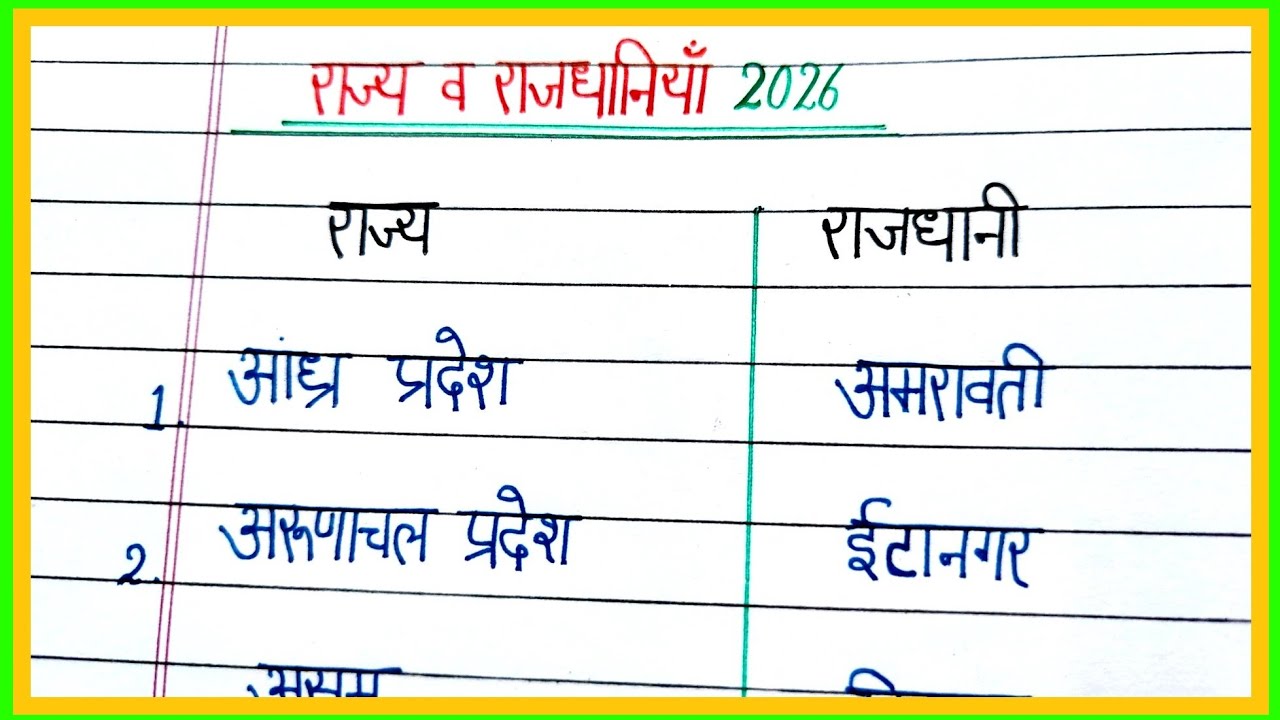 राज्य व राजधानियाँ 2026
राज्य राजधानी
1. आंध्र प्रदेश अमरावती
2. अरूणाचल प्रदेश ईटानगर
असम